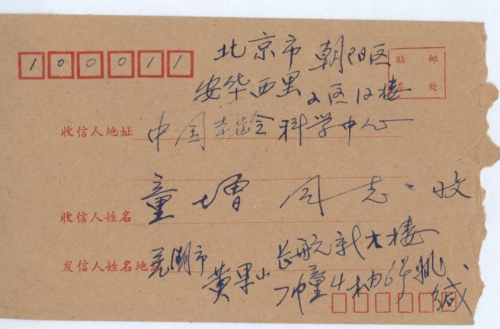 100011
北京市 朝阳区
贴 邮
票 处
安华西里2区12楼
收信人地址 中国老龄科学中心
收信人姓名 童增 同志 收
发信人姓名地址 芜湖市 黄果山 长航新大楼
4 6 缄